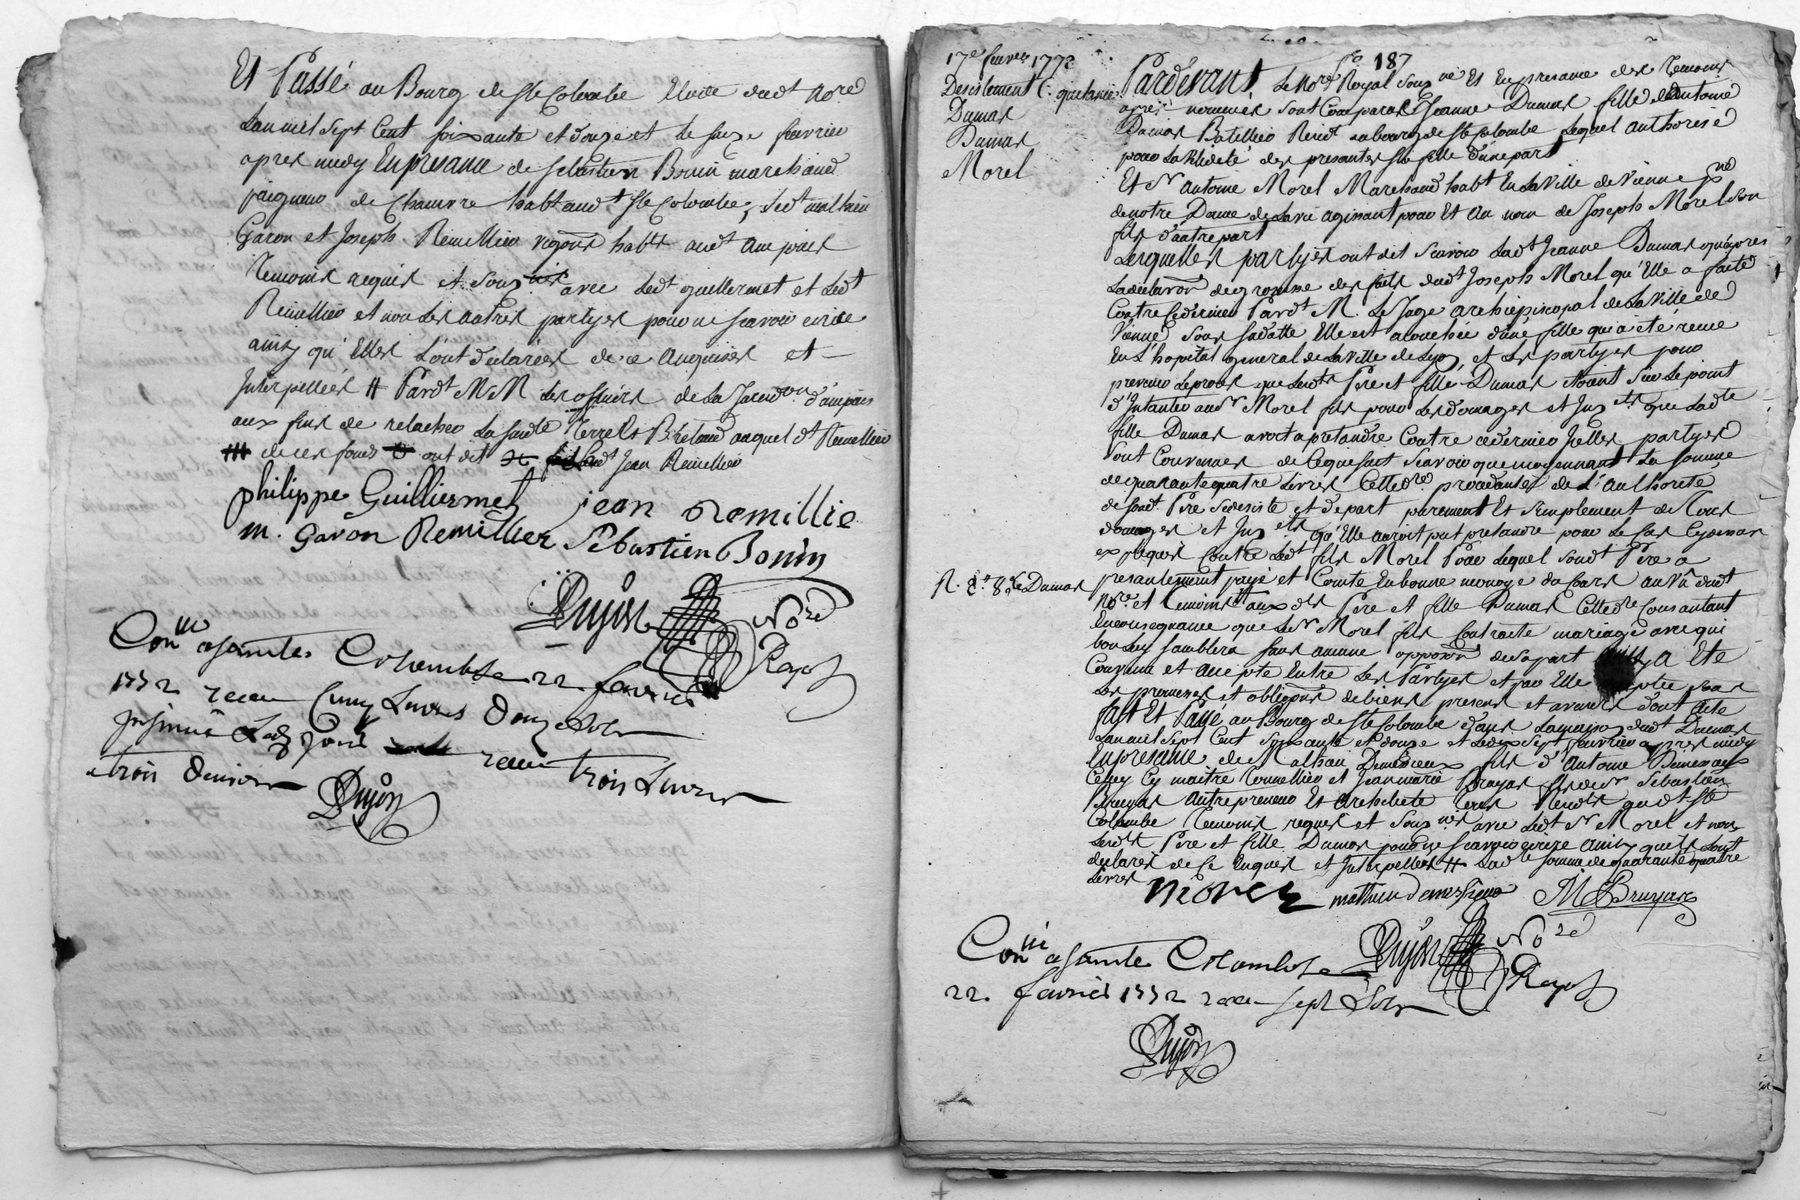 Et Passé au Bourg de Ste Colombe Etude dudt Nore
Lan mil sept Cent soixante et douze et le seize fevrier
apres midy En presance de sebastien Bonin marchand
paigneur de Chanvre habt audt Ste Colombe, sieurt mathieu
Garon et Joseph Remillier vigons habts audt Ampuis
Temoins requis et sousnés avec ledt guillermet et ledt
Remillier et non les autres partyes pour ne scavoir ecrire
ainsy qu'Elles L'ont declarées de ce Enquises et
Interpellées # Pardt MM les officiers de La Jurisdon d'ampuis
aux fins de relacher La susde Terre et Bretaud auquel dt Remillier
de ces fonds ont dit Jean Remillier
philippe Guilliermet jean Remillie
m. Garon Remillier Sebastien Bonin
Dujon Nore
Royal
Conlle a Sainte Colombe 22 fevrier
1772 receu Cinq Livres Douze Sols
Insinué Lad jour receu trois Livres
trois Deniers
Dujon
17e fevrier 1772
Desistement & quitance
Dumas
Dumas
Morel
fo 187
Pardevant Le Nore Royal sousné Et En presance des Temoins
apres nommés sont Comparus Jeanne Dumas fille d'Antoine
Dumas Batellier Residt au bourg de Ste Colombe Lequel authorise
pour La Validité des presantes sa fille d'une part
Et Sr antoine Morel Marchand habt En la Ville de Vienne
de notre Dame de Lavie agissant pour Et au nom de Joseph Morel son
fils d'autre part
Lesquelles partyes ont dit scavoir Ladt Jeanne Dumas qu'apres
La declaraon de grossesse des faits dudt Joseph Morel qu'Elle a faite
Contre Ce dernier Pardt M. Le Juge archiepiscopal de La Ville de
Vienne sous sa datte Elle est acouchée d'une fille qui a été remise
En L'hopital general de La Ville de Lyon, et Les partyes pour
prevenir Le proces que Lesdts Pere et fille Dumas etoient sur Le point
d'Intanter audt Sr Morel fils pour Les domages et Interests que Ladte
fille Dumas avoit a pretandre Contre ce dernier Icelles partyes
sont Convenues de Ce qui suit scavoir que moyennant La somme
de quarante quatre Livres Cette dre procedante de L'authorité
de sondt Pere se desiste et depart purement Et simplement de Tous
domages et Interests qu'Elle auroit put pretandre pour Le fait Cydevant
expliqué Contre Ledt fils Morel Pour Lequel sondt Pere a
presantement payé et Comté En bonne monoye du Cours au Vu dudt
R. 2e 8re Dumas
Nore et Temoins # aux dts Pere et fille Dumas Cette dre Consantant
En Consequance que Le Sr Morel fils Contracte mariage avec qui
bon Luy semblera sans aucune opposon de sa part a Eté
Convenu et accepté Entre Les Partyes et par Elle
Les promesses et obligaons de biens presens et avenirs dont acte
fait Et Passé au Bourg de Ste Colombe dans La maison dudt Dumas
Lan mil sept Cent soixante et douze et Le dix sept fevrier apres midy
En presance de Mathieu Demezieux fils d'Antoine Demezieux
Maitre Tonnellier et Jean marie Bruyas fils de Sr Sebastien
Bruyas Entrepreneur Et architecte Tous Residts audt Ste
Colombe Temoins requis et sousnés avec Ledt Sr Morel et non
Lesdts Pere et fille Dumas pour ne scavoir ecrire ainsy qu'ils Lont
declarés de Ce Enquis et Interpellés # Ladte somme de quarante quatre
Livres
Morel mathieu demezieux JM Bruyas
Dujon Nore
Royal
Conlle a Sainte Colombe
22 fevrier 1772 receu sept Sols
Dujon